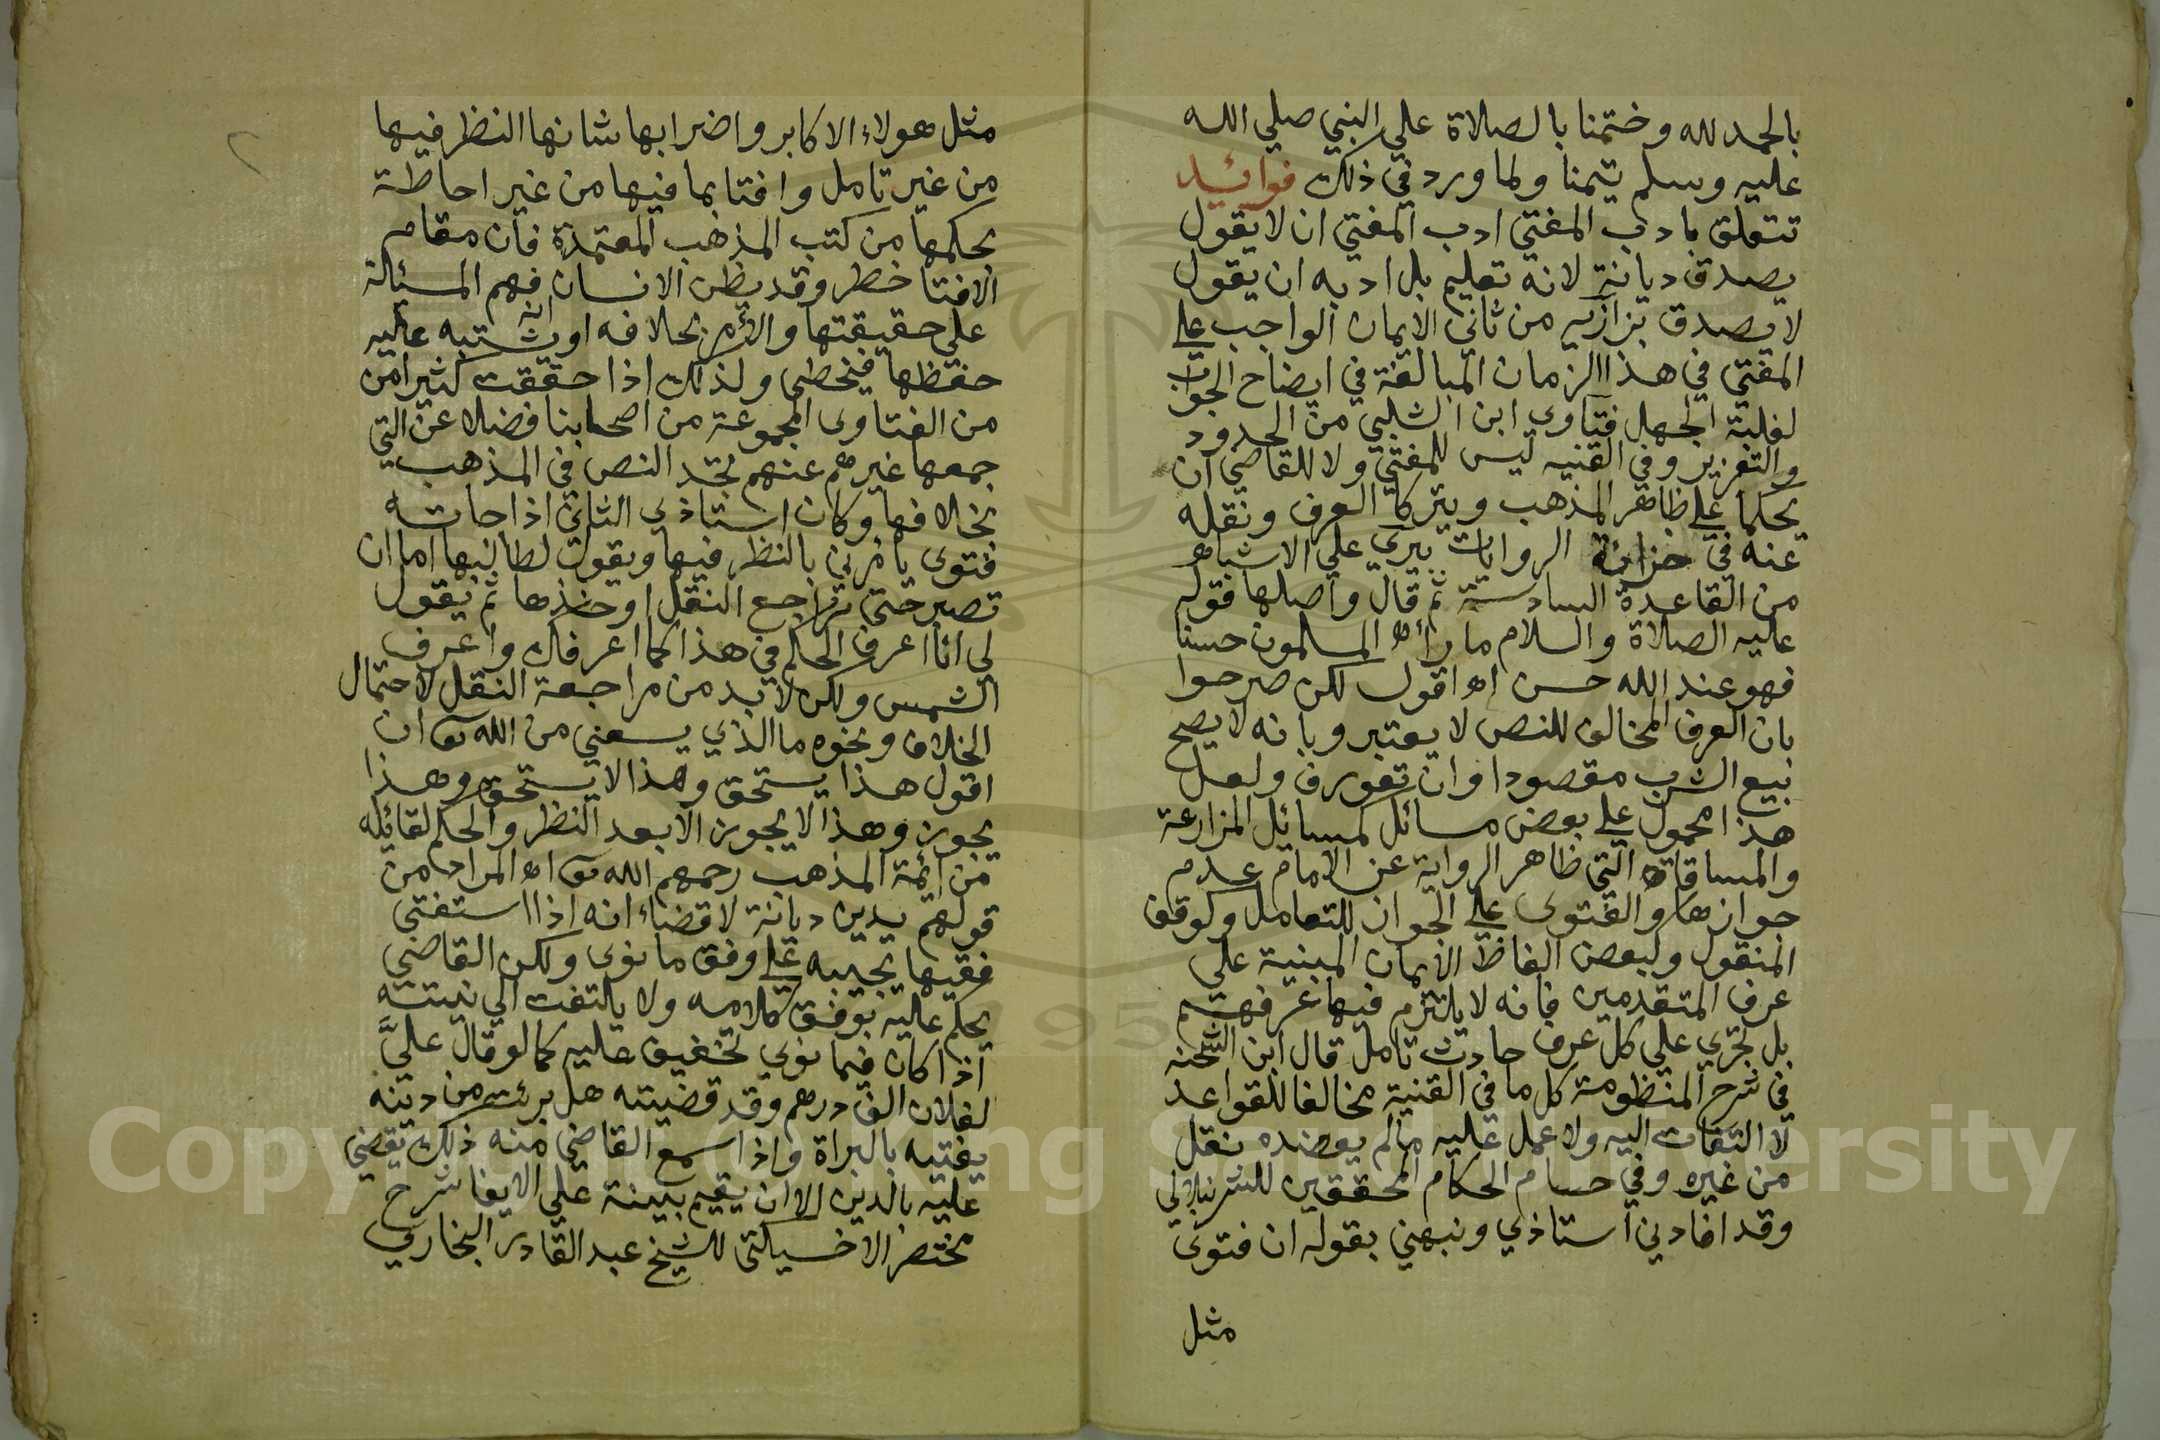 بالحمد لله وختمنا بالصلاة علي النبي صلي الله
عليه وسلم تيمنا ولما ورد في ذلك فوائد
تتعلق بادب المفتي ادب المفتي ان لا يقول
يصدق ديانة لانه تعليم بل ادبه ان يقول
لا يصدق بزازيه من ثاني الايمان الواجب علي
المفتي في هذا الزمان المبالغة في ايضاح الجواب
لغلبة الجهل فتاوى ابن الشلبي من الحدود
والتعزير وفي القنيه ليس للمفتي ولا للقاضي ان
يحكما علي ظاهر المذهب ويتركا العرف ونقله
عنه في خزانة الروايات بيري علي الاشباه
من القاعدة السادسة ثم قال واصلها قوله
عليه الصلاة والسلام ما رأه المسلمون حسنا
فهو عند الله حسن اه اقول لكن صرحوا
بان العرف المخالف للنص لا يعتبر وبانه لا يصح
بيع الشرب مقصودا وان تعورف ولعل
هذا محمول علي بعض مسائل كمسائل المزارعة
والمساقاة التي ظاهر الرواية عن الامام عدم
جوازها والفتوى علي الجواز للتعامل وكوقف
المنقول ولبعض الفاظ الايمان المبنية علي
عرف المتقدمين فانه لا يلتزم فيها عرفهم
بل تجري علي كل عرف حادث تامل قال ابن الشحنه
في شرح المنظومة كل ما في القنية مخالفا للقواعد
لا التفات اليه ولا عمل عليه مالم يعضده نقل
من غيره وفي حسام الحكام المحققين للشرنبلالي
وقد افادني استاذي ونبهني بقوله ان فتوى
مثل
مثل هولاء الاكابر واضرابها شانها النظر فيها
من غير تامل وافتا بما فيها من غير احاطة
بحكمها من كتب المذهب المعتمدة فان مقام
الافتا خطر وقد يظن الانسان فهم المسئالة
علي حقيقتها والأمر بخلافه او انه يشتبه عليه
حفظها فيخطى ولذلك اذا حققت كثيرا من
من الفتاوى المجموعة من اصحابنا فضلا عن التي
جمعها غيرهم عنهم تجد النص في المذهب
بخلافها وكان استاذي الثاني اذا جاته
فتوى يامرني بالنظر فيها ويقول لطالبها اما ان
تصبر حتى نراجع النقل او خذها ثم يقول
لي انا اعرف الحكم في هذا كما اعرفك واعرف
الشمس ولكن لا بد من مراجعة النقل لاحتمال
الخلاف ونحوه ما الذي يسعني من الله تع ان
اقول هذا يستحق وهذا لا يستحق وهذا
يجوز وهذا لا يجوز الا بعد النظر والحكم لقائله
من ائمة المذهب رحمهم الله تع اه المراد من
قولهم يدين ديانة لا قضاء انه اذا استفتى
فقيها يجيبه علي وفق ما نوى ولكن القاضي
يحكم عليه بوفق كلامه ولا يلتفت الي نيته
اذا كان فيما نوي تخفيف عليه كما لو قال عليَّ
لفلان الف درهم وقد قضيته هل برئت من دينه
يفتيه بالبراة واذا سمع القاضي منه ذلك يقضي
عليه بالدين الا ان يقيم بينة علي الايفا شرح
مختصر الاخسيكتى للشيخ عبد القادر البخاري